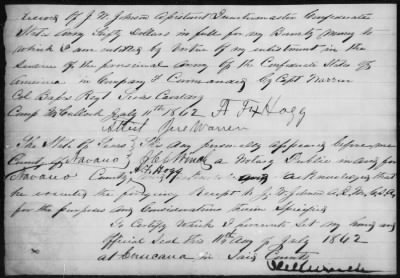 Received of J. W. Johnson Assistant Quartermaster Confederate
States Army Fifty Dollars in full for my Bounty Money to
which I am entitled by virtue of my enlistment in the
Service of the provisional Army of the Confederate States of
America in Company F Commanded by Capt Warren
Col Regt Texas Cavalry
Camp McCulloch July 11th 1862 A F Hogg
Attest Warren
The State of Texas This day personally appeared before me
County of Navarro a Notary Public in and for
Navarro County A F Hogg acknowledged that
he executed the foregoing Receipt to J. W. Johnson A. Q. M. C. S. A.
for the purposes and Considerations therein Specified
To Certify Which I hereunto Set my hand and
official Seal this day of July 1862
at Corsicana in Said County